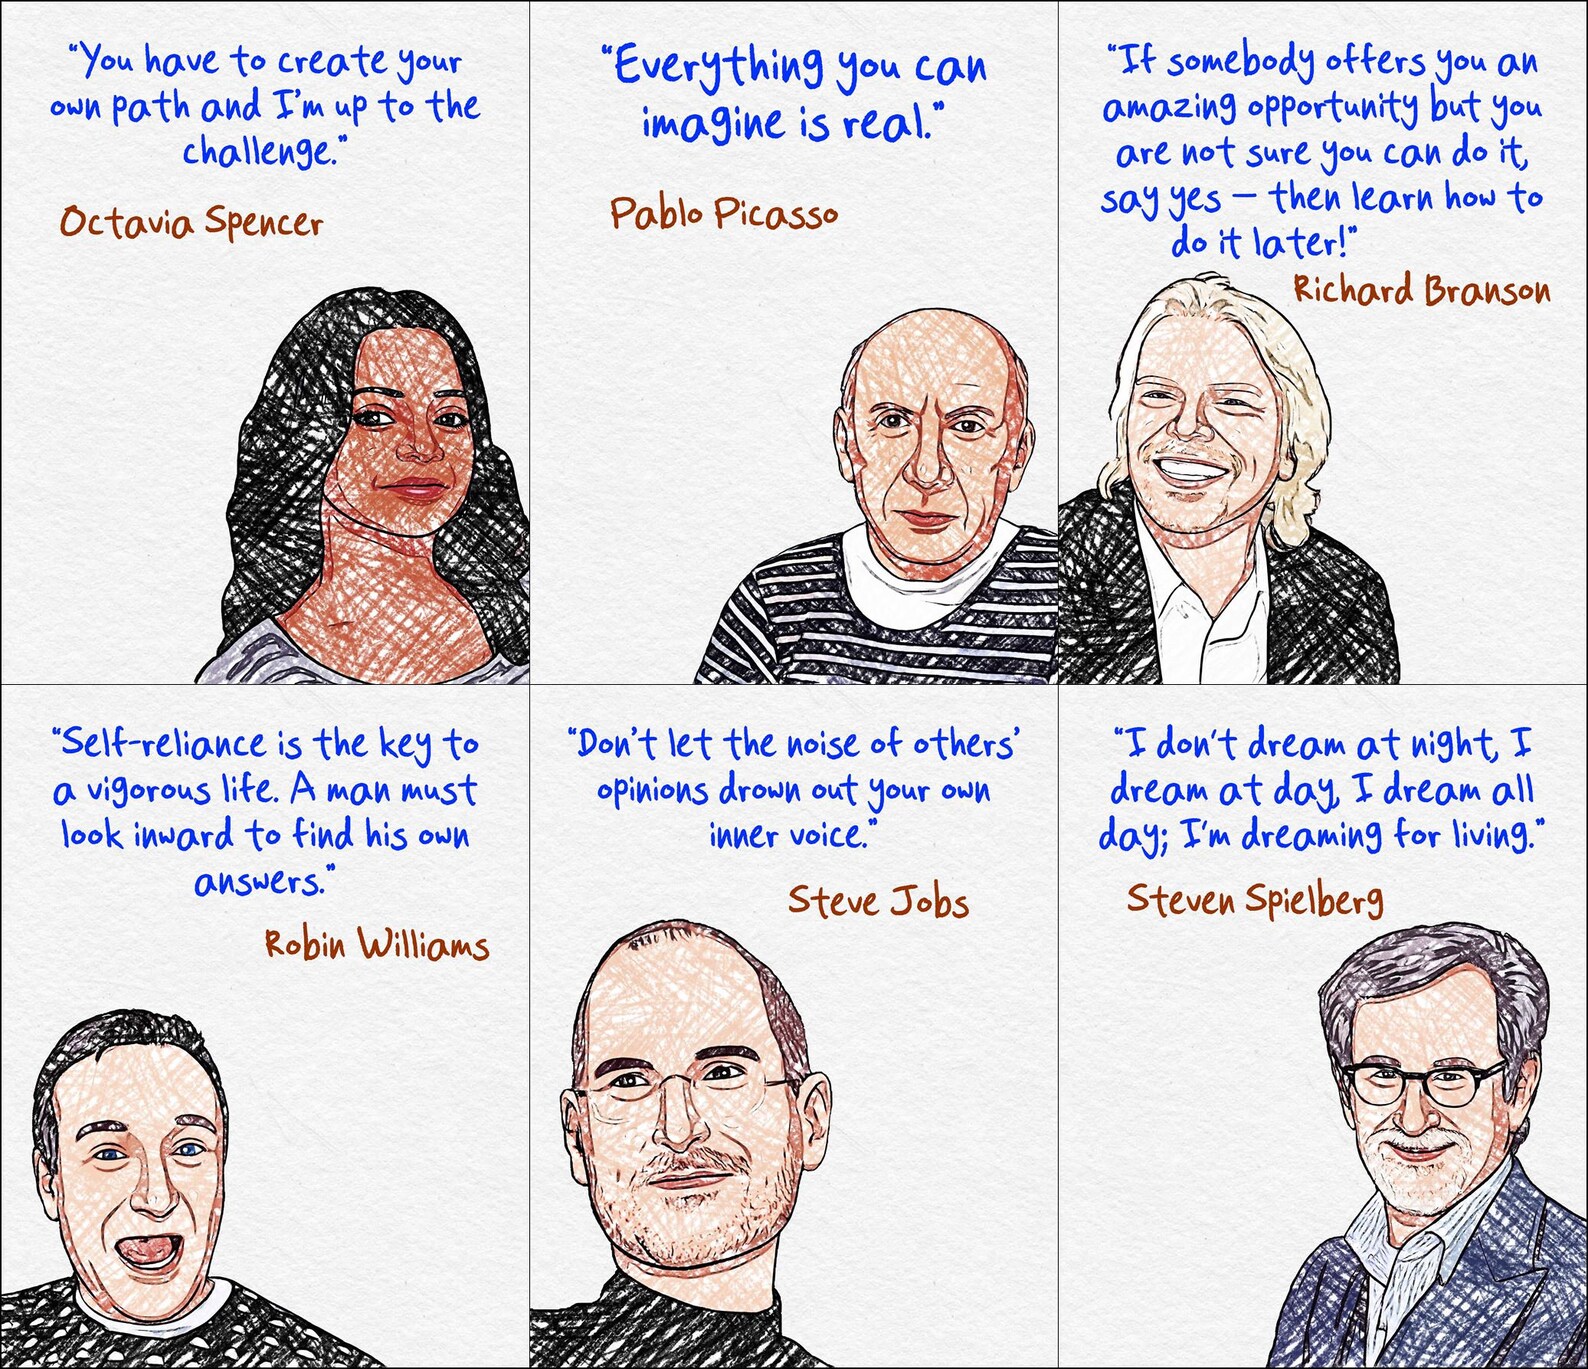 "You have to create your
own path and I'm up to the
challenge."
Octavia Spencer
"Everything you can
imagine is real."
Pablo Picasso
"If somebody offers you an
amazing opportunity but you
are not sure you can do it,
say yes – then learn how to
do it later!"
Richard Branson
"Self-reliance is the key to
a vigorous life. A man must
look inward to find his own
answers."
Robin Williams
"Don't let the noise of others'
opinions drown out your own
inner voice."
Steve Jobs
"I don't dream at night, I
dream at day, I dream all
day; I'm dreaming for living."
Steven Spielberg